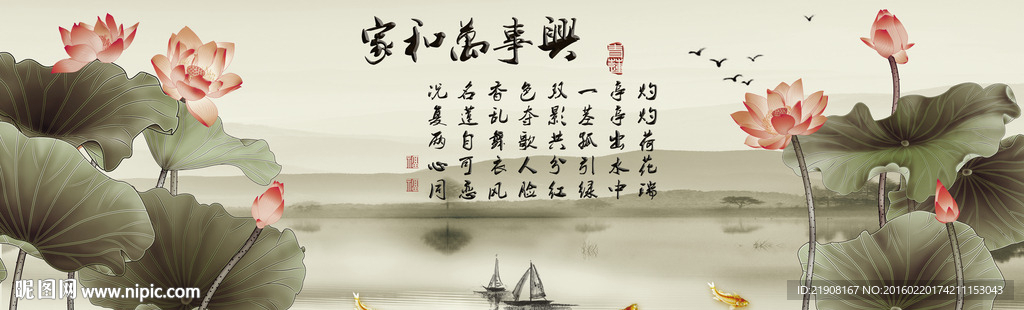 家和萬事興
灼灼荷花瑞
亭亭出水中
一茎孤引绿
双影共分红
色夺歌人脸
香乱舞衣风
名莲自可恋
况复两心同
昵图网 www.nipic.com
ID:21908167 NO:20160220174211153043